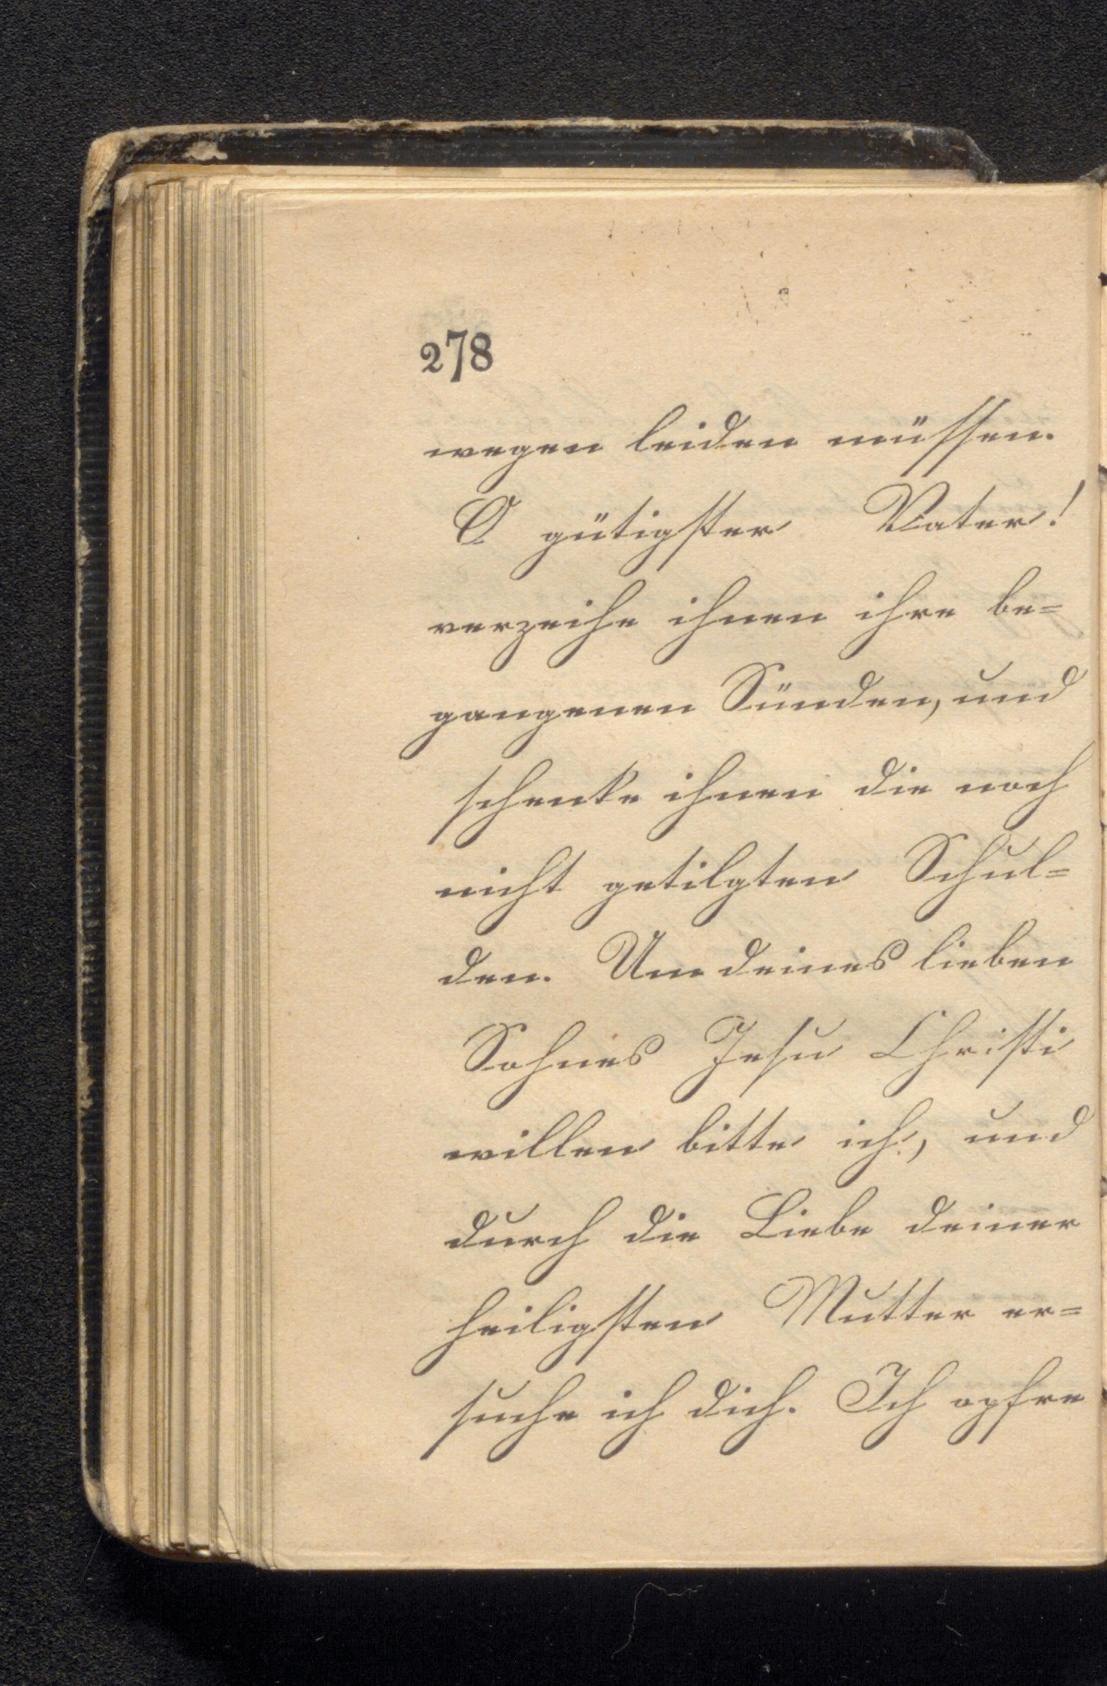 278
wegen leiden müssen.
O gütigster Vater!
verzeihe ihnen ihre be=
gangenen Sünden, und
schenke ihnen die noch
nicht getilgten Schul=
den. Um deines lieben
Sohnes Jesu Christi
willen bitte ich, und
durch die Liebe deiner
heiligsten Mutter er=
suche ich dich. Ich opfre